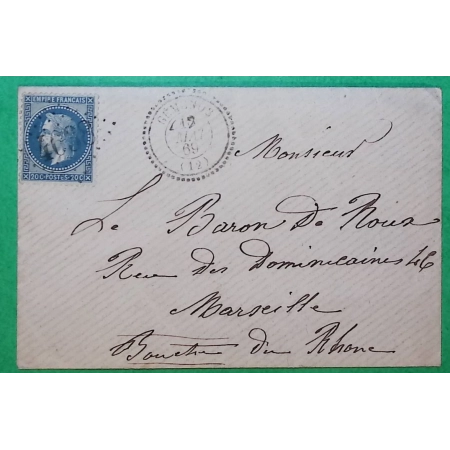 EMPIRE FRANÇAIS
20C POSTES 20C
12
69
(12)
Monsieur
Le Baron De Roux
Rue des Dominicaines 46
Marseille
Bouche du Rhone